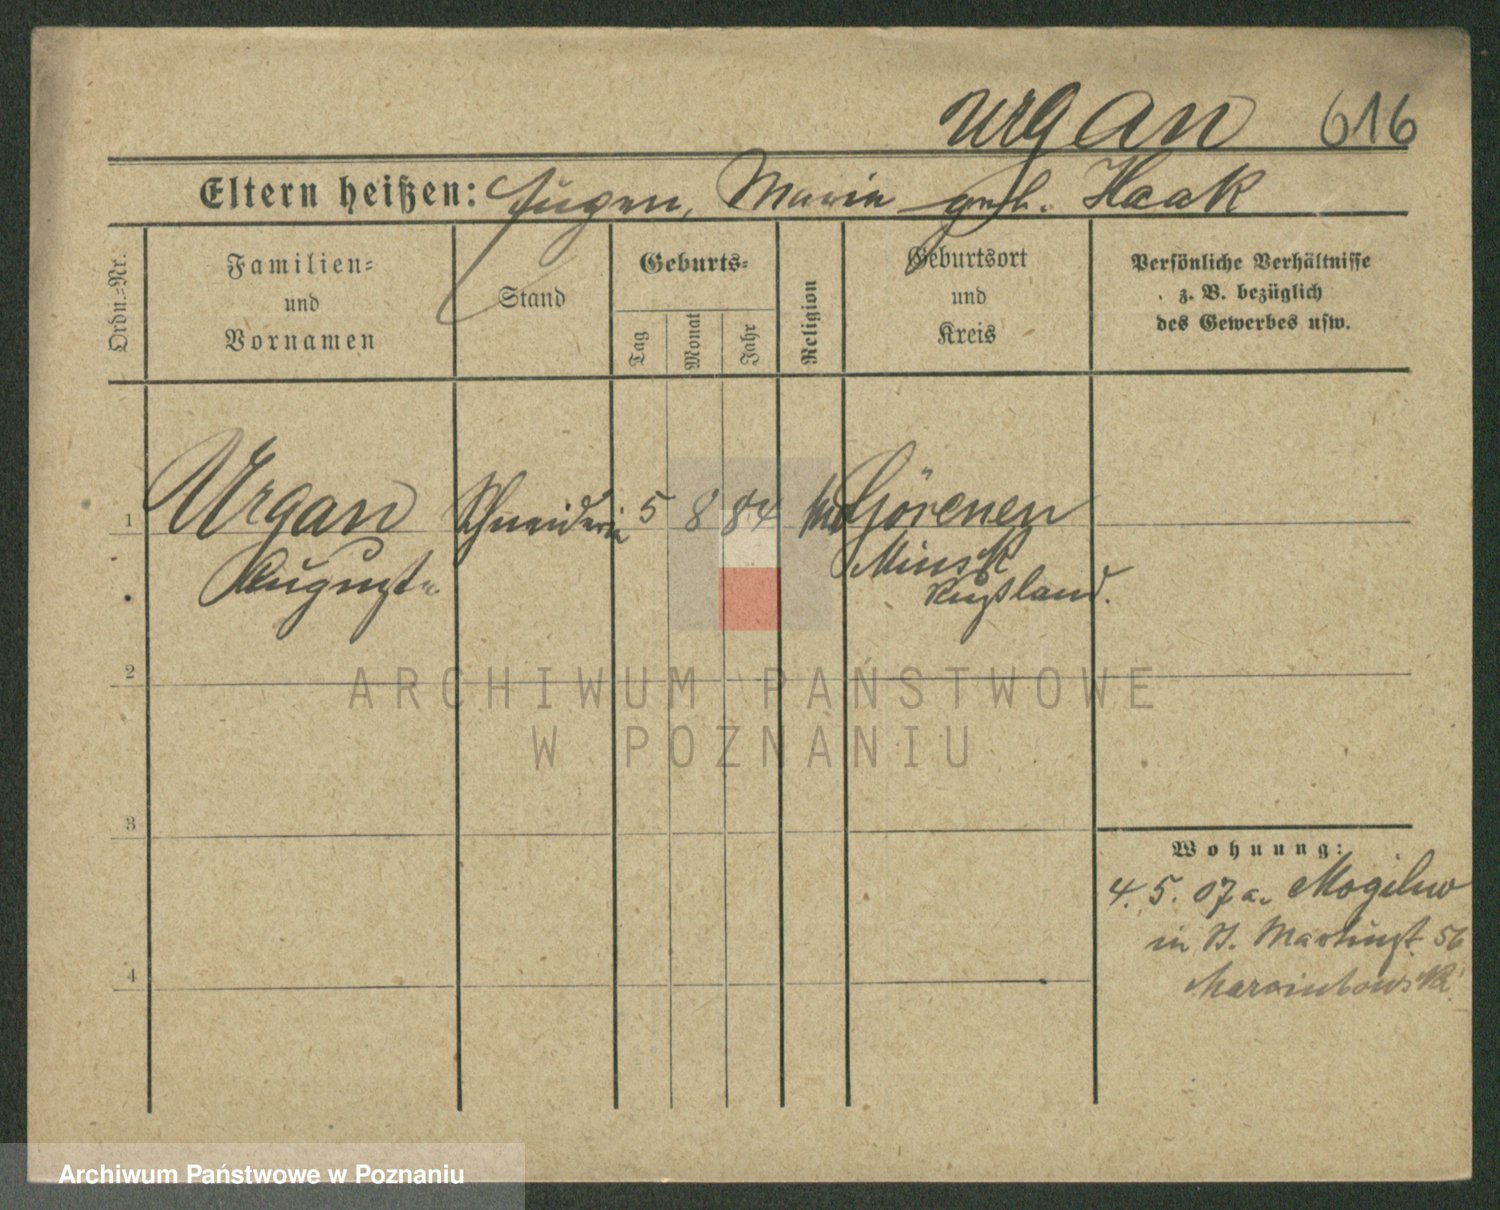 Urgan 616
Eltern heißen: Eugen, Marie geb. Haak
Ordn.-Nr.
Familien=
und
Vornamen
Stand
Geburts=
Tag
Monat
Jahr
Religion
Geburtsort
und
Kreis
Persönliche Verhältnisse
z. B. bezüglich
des Gewerbes usw.
1 Urgan Schneiderin 5 8 84 Görenen
Auguste Minsk
Rußland.
2
3
4
Wohnung:
4. 5. 07 a. Mogilno
in St. Martinst. 56
ARCHIWUM PAŃSTWOWE
W POZNANIU
Archiwum Państwowe w Poznaniu